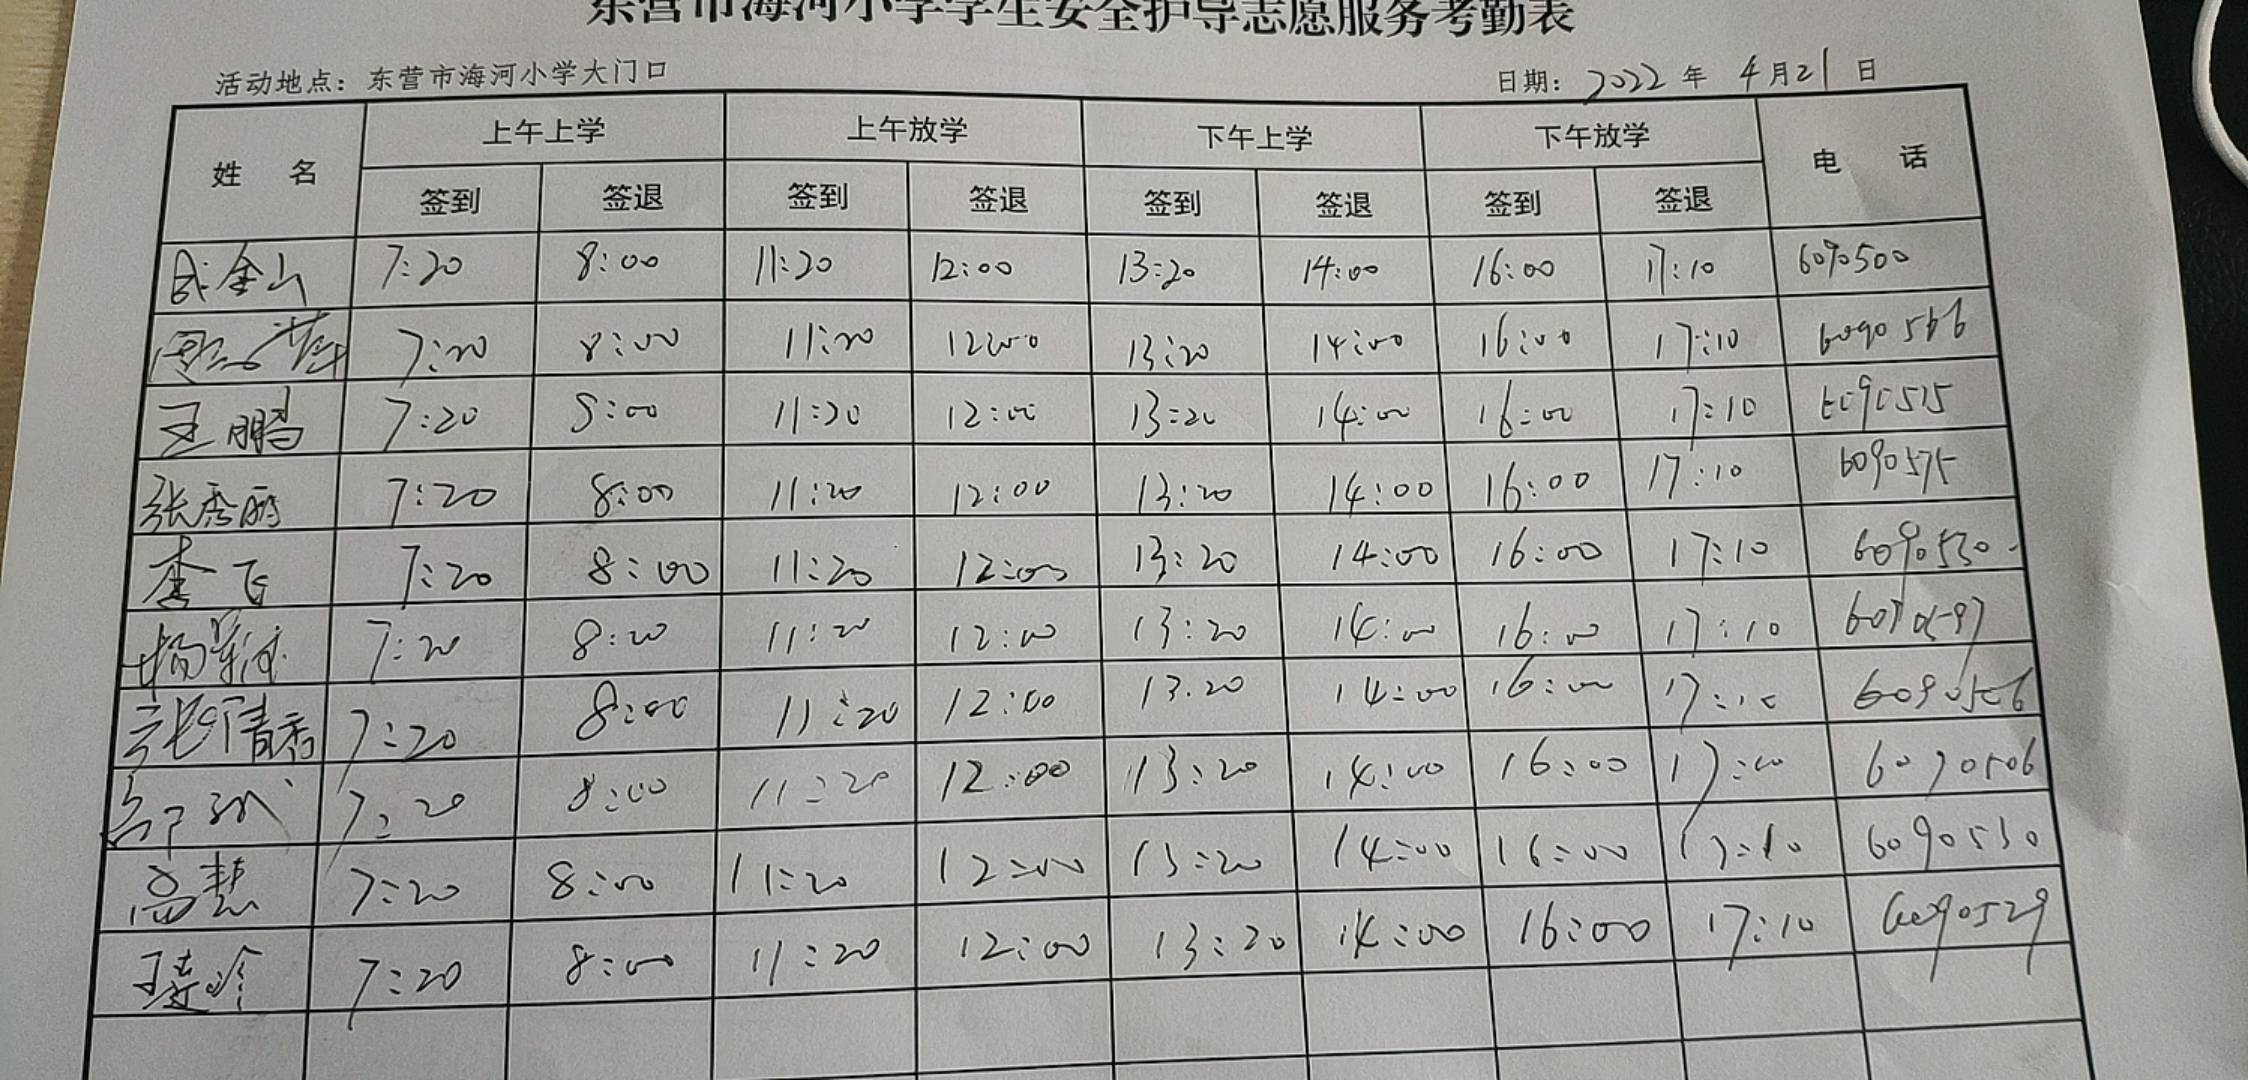 东营市海河小学学生安全护导志愿服务考勤表
活动地点：东营市海河小学大门口 日期：2022年 4月21日
姓 名 上午上学 上午放学 下午上学 下午放学 电 话
签到 签退 签到 签退 签到 签退 签到 签退
武金山 7:20 8:00 11:20 12:00 13:20 14:00 16:00 17:10 6090500
7:20 8:00 11:20 12:00 13:20 14:00 16:00 17:10 6090566
王鹏 7:20 8:00 11:20 12:00 13:20 14:00 16:00 17:10 6090515
张秀丽 7:20 8:00 11:20 12:00 13:20 14:00 16:00 17:10 6090575
李飞 7:20 8:00 11:20 12:00 13:20 14:00 16:00 17:10 6090530
7:20 8:20 11:20 12:00 13:20 14:00 16:00 17:10 6090597
7:20 8:00 11:20 12:00 13.20 14:00 16:00 17:10 6090506
7:20 8:00 11:20 12:00 13:20 14:00 16:00 17:10 6090506
高慧 7:20 8:00 11:20 12:00 13:20 14:00 16:00 17:10 6090530
7:20 8:00 11:20 12:00 13:20 14:00 16:00 17:10 6090529